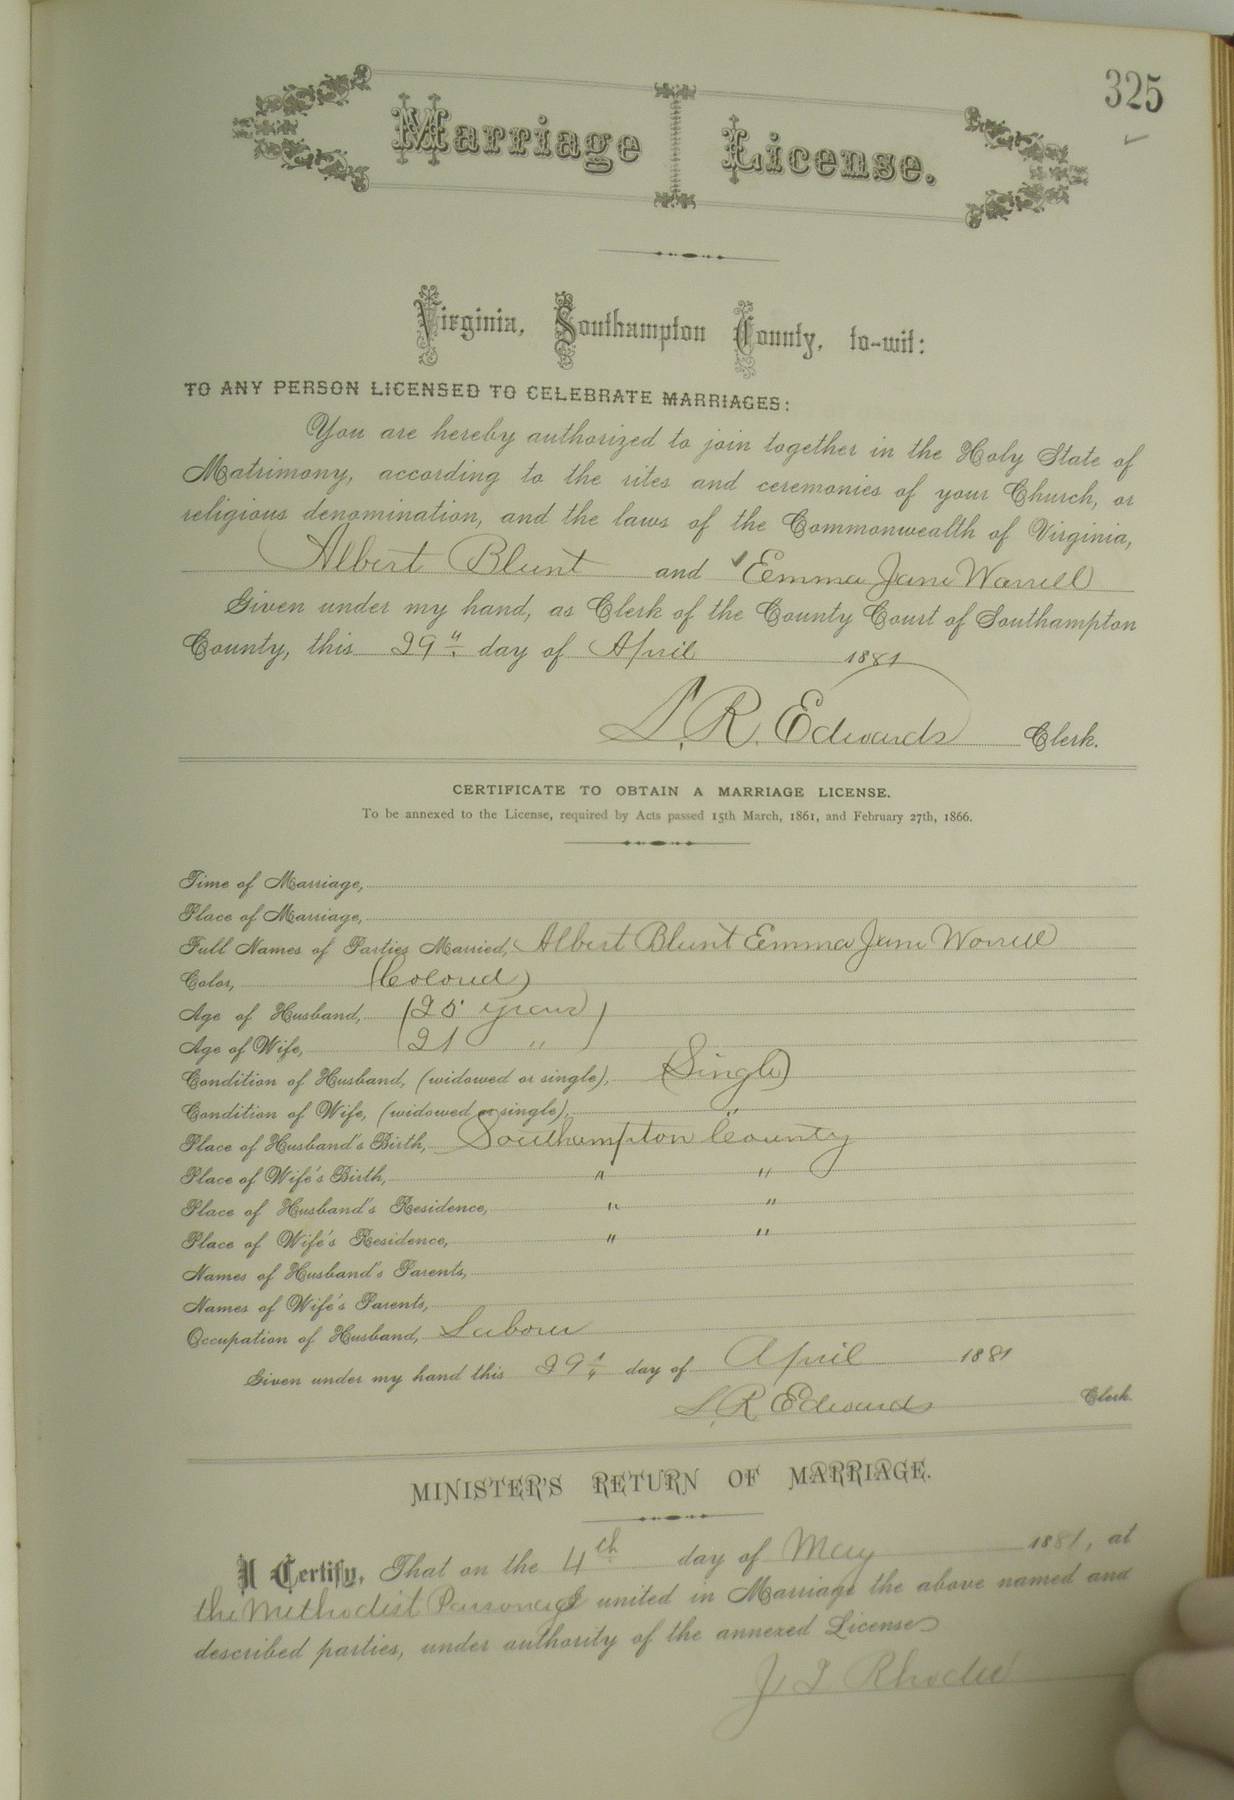 325
Marriage License.
Virginia, Southampton County, to-wit:
TO ANY PERSON LICENSED TO CELEBRATE MARRIAGES:
You are hereby authorized to join together in the Holy State of
Matrimony, according to the rites and ceremonies of your Church, or
religious denomination, and the laws of the Commonwealth of Virginia,
Albert Blunt and Emma Jane Worrell
Given under my hand, as Clerk of the County Court of Southampton
County, this 29th day of April 1881
L. R. Edwards Clerk.
CERTIFICATE TO OBTAIN A MARRIAGE LICENSE.
To be annexed to the License, required by Acts passed 15th March, 1861, and February 27th, 1866.
Time of Marriage,
Place of Marriage,
Full Names of Parties Married, Albert Blunt Emma Jane Worrell
Color, (Colored)
Age of Husband, (25 years)
Age of Wife, 21 "
Condition of Husband, (widowed or single), (Single)
Condition of Wife, (widowed or single), "
Place of Husband's Birth, Southampton County
Place of Wife's Birth, " "
Place of Husband's Residence, " "
Place of Wife's Residence, " "
Names of Husband's Parents,
Names of Wife's Parents,
Occupation of Husband, Laborer
Given under my hand this 29th day of April 1881
L. R. Edwards Clerk.
MINISTER'S RETURN OF MARRIAGE.
I Certify, That on the 4th day of May 1881, at
the Methodist Parsonage united in Marriage the above named and
described parties, under authority of the annexed License